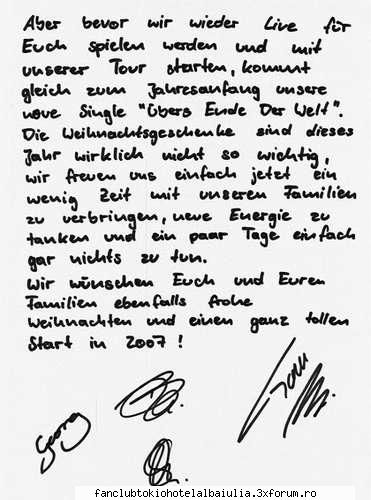 Aber bevor wir wieder Live für
Euch spielen werden und mit
unserer Tour starten, kommt
gleich zum Jahresanfang unsere
neue Single "Übers Ende Der Welt".
Die Weihnachtsgeschenke sind dieses
Jahr wirklich nicht so wichtig,
wir freuen uns einfach jetzt ein
wenig Zeit mit unseren Familien
zu verbringen, neue Energie zu
tanken und ein paar Tage einfach
gar nichts zu tun.
Wir wünschen Euch und Euren
Familien ebenfalls frohe
Weihnachten und einen ganz tollen
Start in 2007!
Georg
Tom
fanclubtokiohotelalbaiulia.3xforum.ro